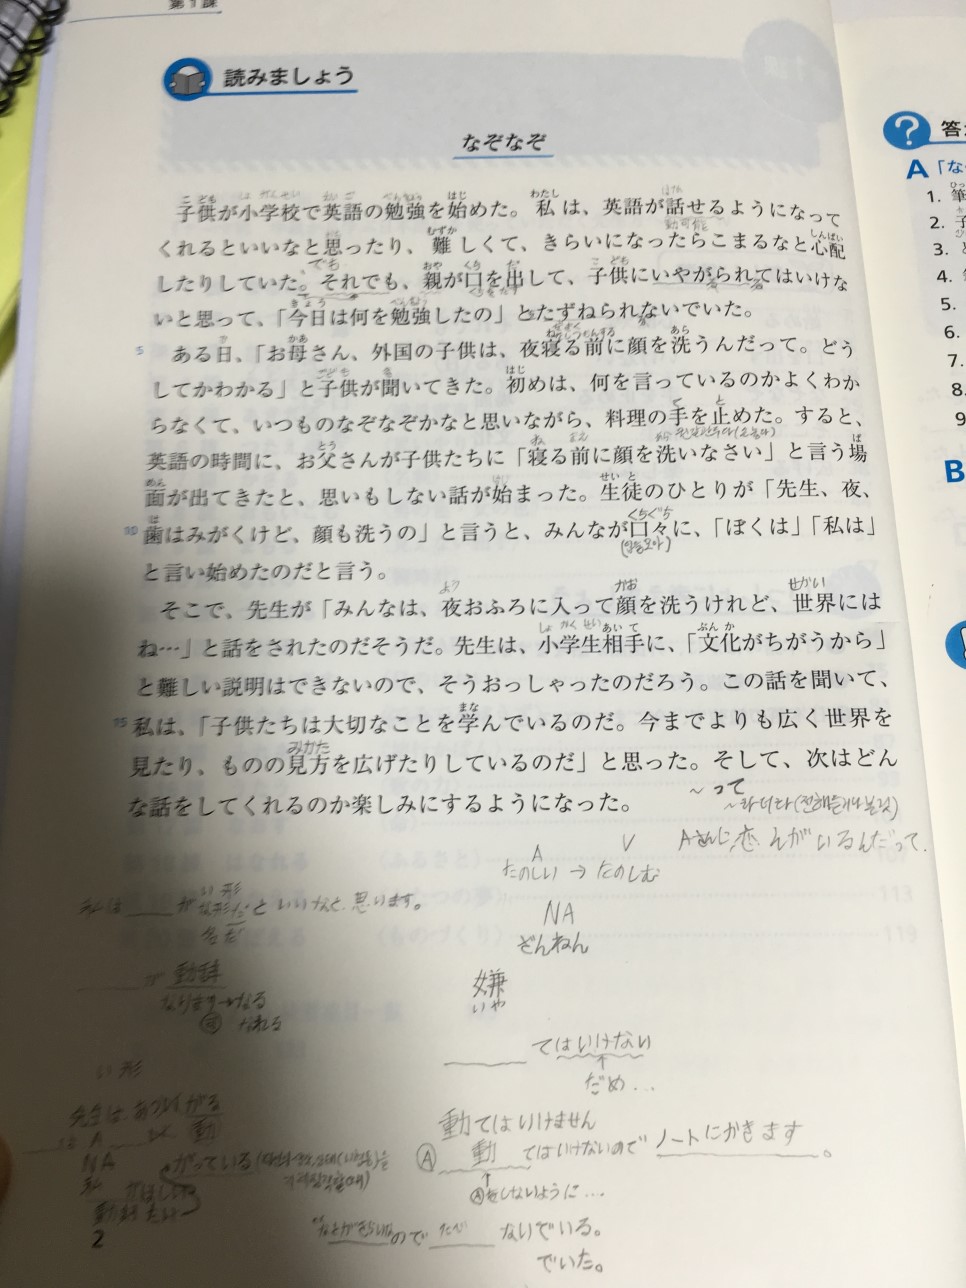 第1課
読みましょう
なぞなぞ
子供が小学校で英語の勉強を始めた。私は、英語が話せるようになって
くれるといいなと思ったり、難しくて、きらいになったらこまるなと心配
したりしていた。それでも、親が口を出して、子供にいやがられてはいけな
いと思って、「今日は何を勉強したの」とたずねられないでいた。
5 ある日、「お母さん、外国の子供は、夜寝る前に顔を洗うんだって。どう
してかわかる」と子供が聞いてきた。初めは、何を言っているのかよくわか
らなくて、いつものなぞなぞかなと思いながら、料理の手を止めた。すると、
英語の時間に、お父さんが子供たちに「寝る前に顔を洗いなさい」と言う場
面が出てきたと、思いもしない話が始まった。生徒のひとりが「先生、夜、
10 歯はみがくけど、顔も洗うの」と言うと、みんなが口々に、「ぼくは」「私は」
と言い始めたのだと言う。
そこで、先生が「みんなは、夜おふろに入って顔を洗うけれど、世界には
ね…」と話をされたのだそうだ。先生は、小学生相手に、「文化がちがうから」
と難しい説明はできないので、そうおっしゃったのだろう。この話を聞いて、
15 私は、「子供たちは大切なことを学んでいるのだ。今までよりも広く世界を
見たり、ものの見方を広げたりしているのだ」と思った。そして、次はどん
な話をしてくれるのか楽しみにするようになった。
～って
A V
たのしい → たのしむ
NA
ざんねん
嫌
いや
てはいけない
だめ…
い形
動てはいけません
Ⓐ 動 てはいけないので ノートにかきます。
ので ないでいる。
でいた。
2
答
A「な
1. 筆
2. 子
3. ど
4.
5.
6.
7.
8.
9
B